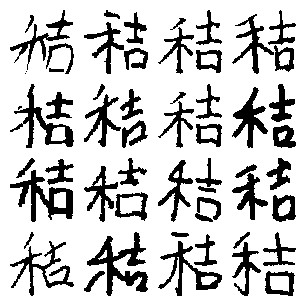 秸秸秸秸
秸秸秸秸
秸秸秸秸
秸秸秸秸